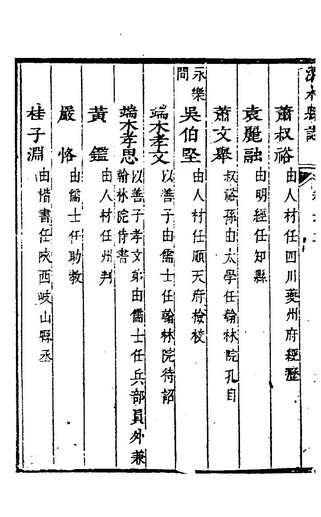 溧水縣志
蕭叔裕 由人材任四川夔州府經歷
袁麗融 由明經任知縣
蕭文舉 叔裕孫由太學任翰林院孔目
永樂間
吳伯堅 由人材任順天府檢校
端木孝文 以善子由儒士任翰林院待詔
端木孝思 以善子孝文弟由儒士任兵部員外兼
翰林院侍書
黃鑑 由人材任州判
嚴恪 由儒士任助教
桂子淵 由楷書任陝西岐山縣丞